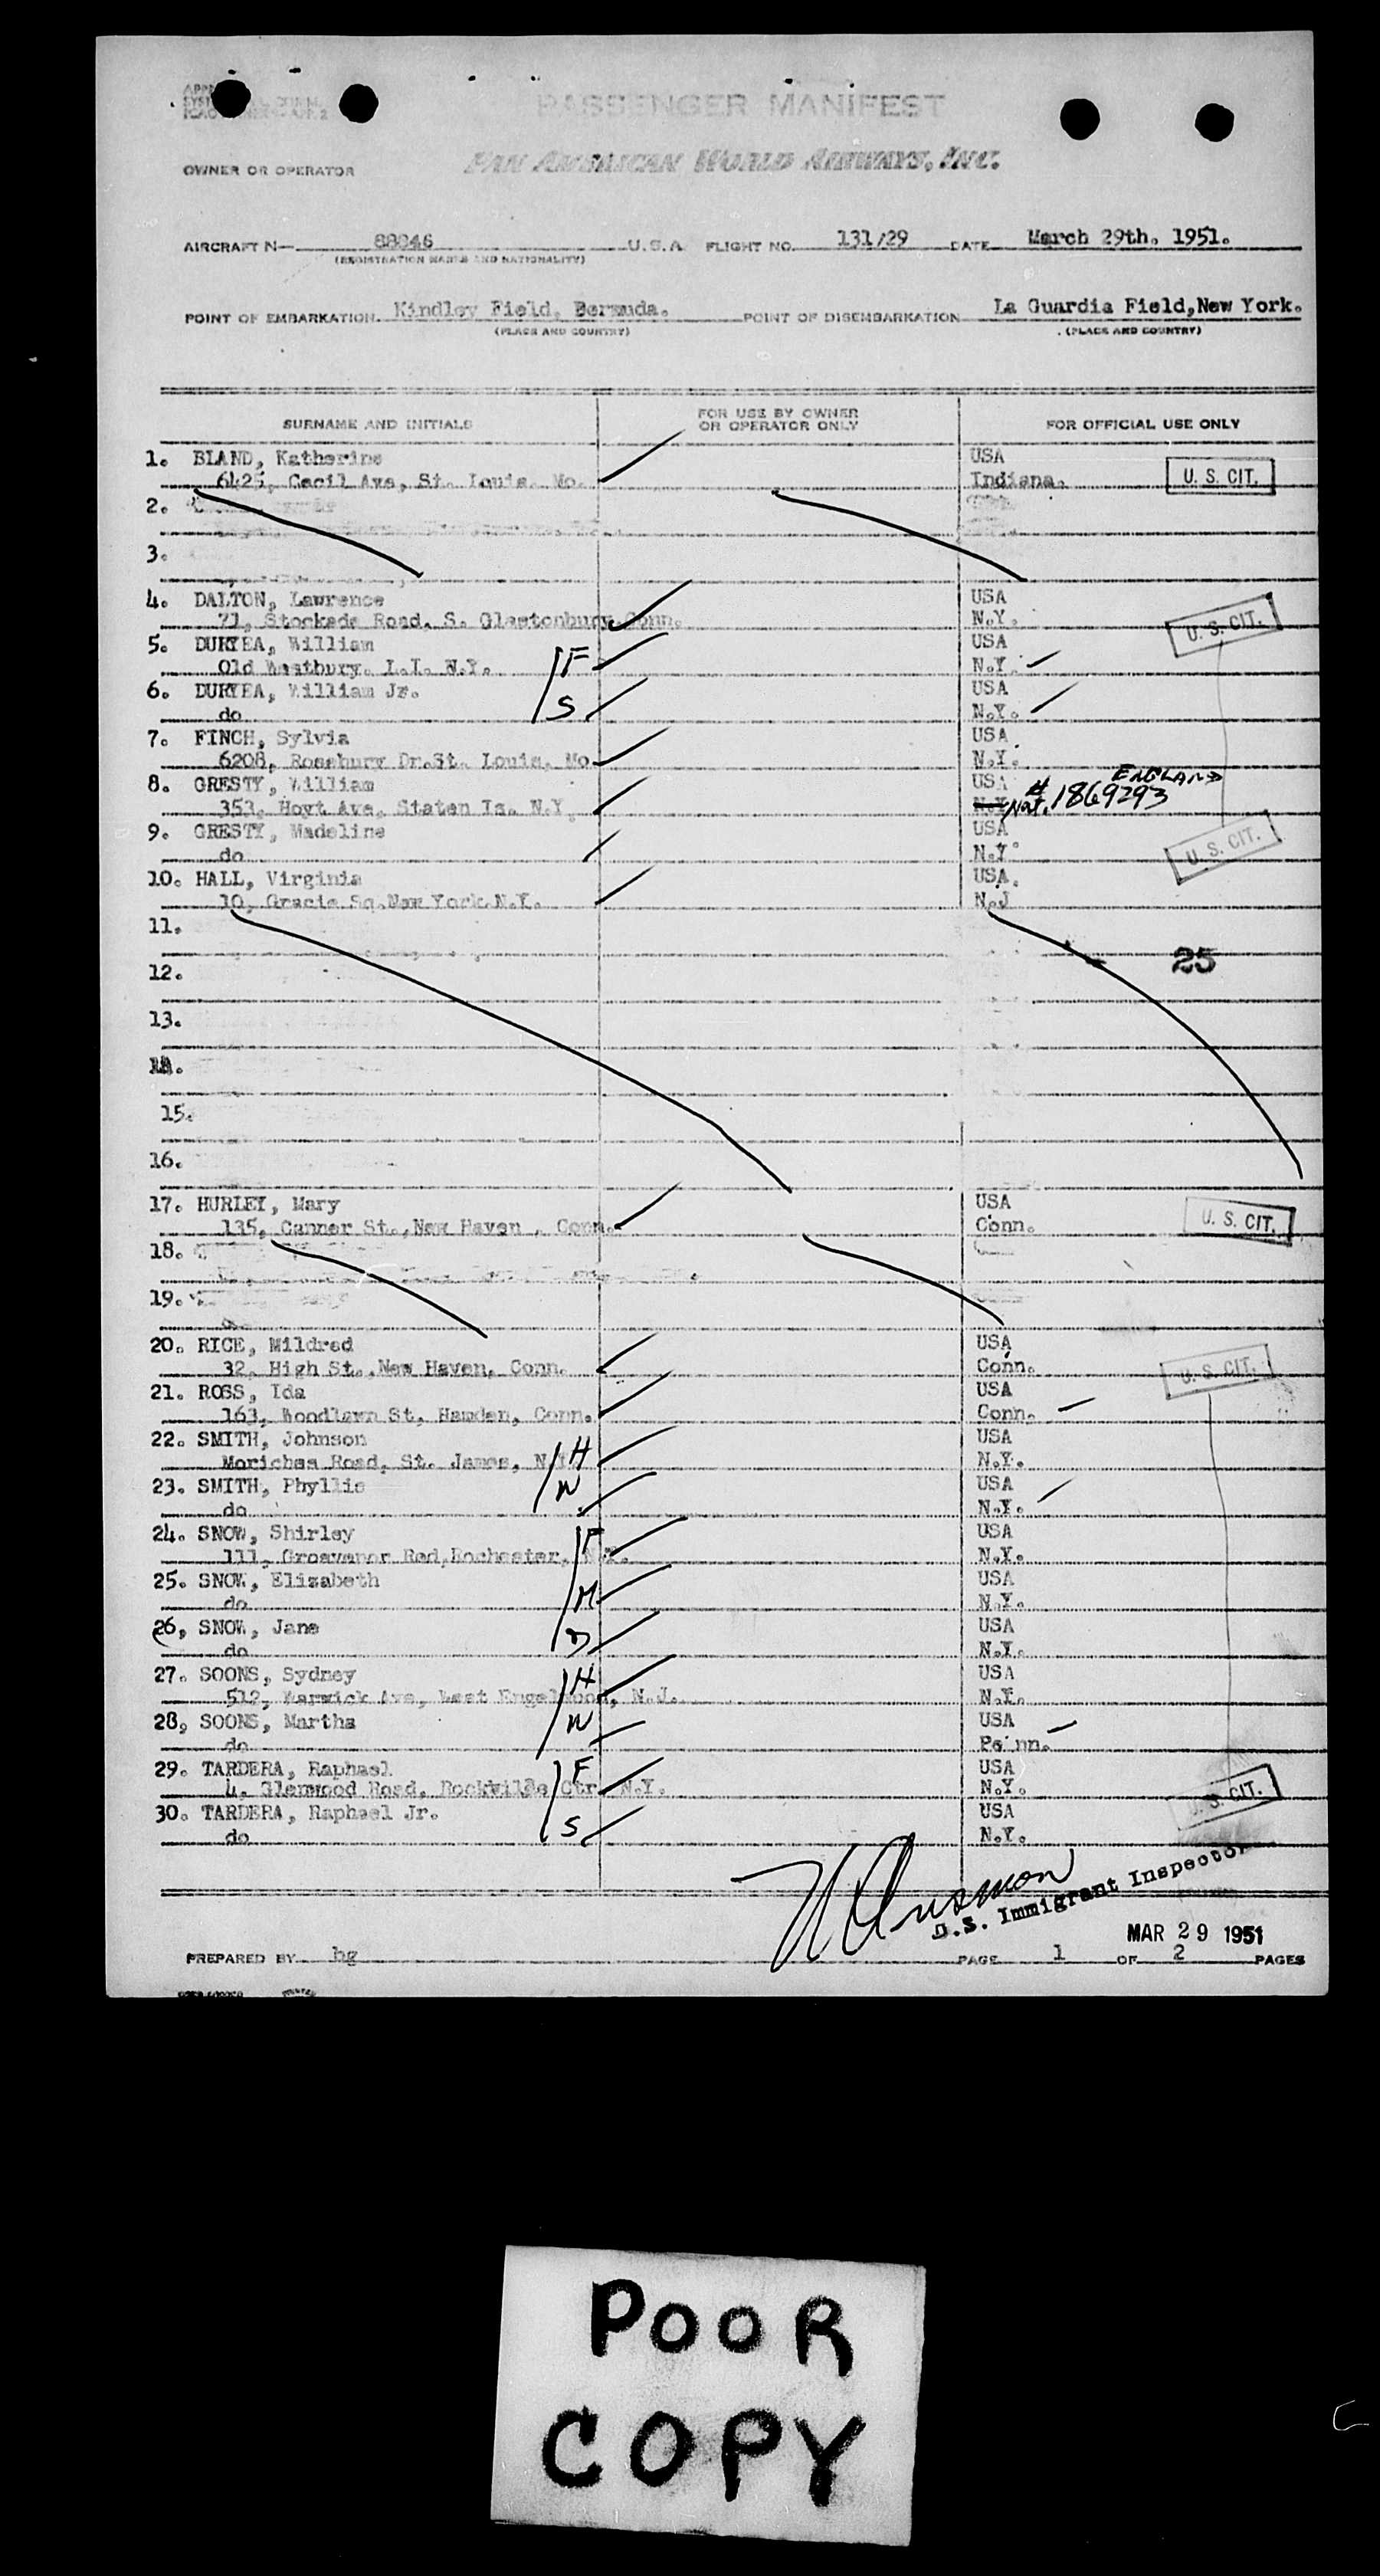 PASSENGER MANIFEST
OWNER OR OPERATOR PAN AMERICAN WORLD AIRWAYS, INC.
AIRCRAFT N— 88846 U.S.A FLIGHT NO. 131/29 DATE March 29th. 1951.
(REGISTRATION MARKS AND NATIONALITY)
POINT OF EMBARKATION. Kindley Field, Bermuda. POINT OF DISEMBARKATION La Guardia Field,New York.
(PLACE AND COUNTRY) (PLACE AND COUNTRY)
SURNAME AND INITIALS FOR USE BY OWNER OR OPERATOR ONLY FOR OFFICIAL USE ONLY
1. BLAND, Katherine USA
6425, Cecil Ave, St. Louis. Mo. Indiana. U. S. CIT.
2.
3.
4. DALTON, Lawrence USA
71, Stockade Road, S. Glastonbury Conn. N.Y. U. S. CIT.
5. DURYEA, William USA
Old Westbury. L.I. N.Y. F N.Y.
6. DURYEA, William Jr. USA
do S N.Y.
7. FINCH, Sylvia USA
6208, Rosebury Dr.St. Louis, Mo N.Y.
8. GRESTY, William USA ENGLAND
353, Hoyt Ave, Staten Is. N.Y. N.Y. Nat. # 1869293
9. GRESTY, Madeline USA
do N.Y. U. S. CIT.
10. HALL, Virginia USA.
10, Gracie Sq.New York N.Y. N.J
11.
25
12.
13.
14.
15.
16.
17. HURLEY, Mary USA
135, Canner St.,New Haven , Conn. Conn. U. S. CIT.
18.
19.
20. RICE, Mildred USA
32, High St.,New Haven, Conn. Conn. U. S. CIT.
21. ROSS, Ida USA
163, Woodlawn St, Hamden, Conn. Conn.
22. SMITH, Johnson USA
Moriches Road, St. James, N.Y. H N.Y.
23. SMITH, Phyllis W USA
do N.Y.
24. SNOW, Shirley F USA
111, Grosvenor Red,Rochester, N.Y. N.Y.
25. SNOW, Elizabeth USA
do M N.Y.
26, SNOW, Jane USA
do D N.Y.
27. SOONS, Sydney H USA
512, Warwick Ave, West Engelwood, N.J. N.Y.
28, SOONS, Martha W USA
do Penn.
29. TARDERA, Raphael F USA
4, Glenwood Road, Rockville Ctr N.Y. N.Y. U. S. CIT.
30. TARDERA, Raphael Jr. USA
do S N.Y.
U.S. Immigrant Inspector
MAR 29 1951
PREPARED BY hg PAGE 1 OF 2 PAGES
POOR
COPY